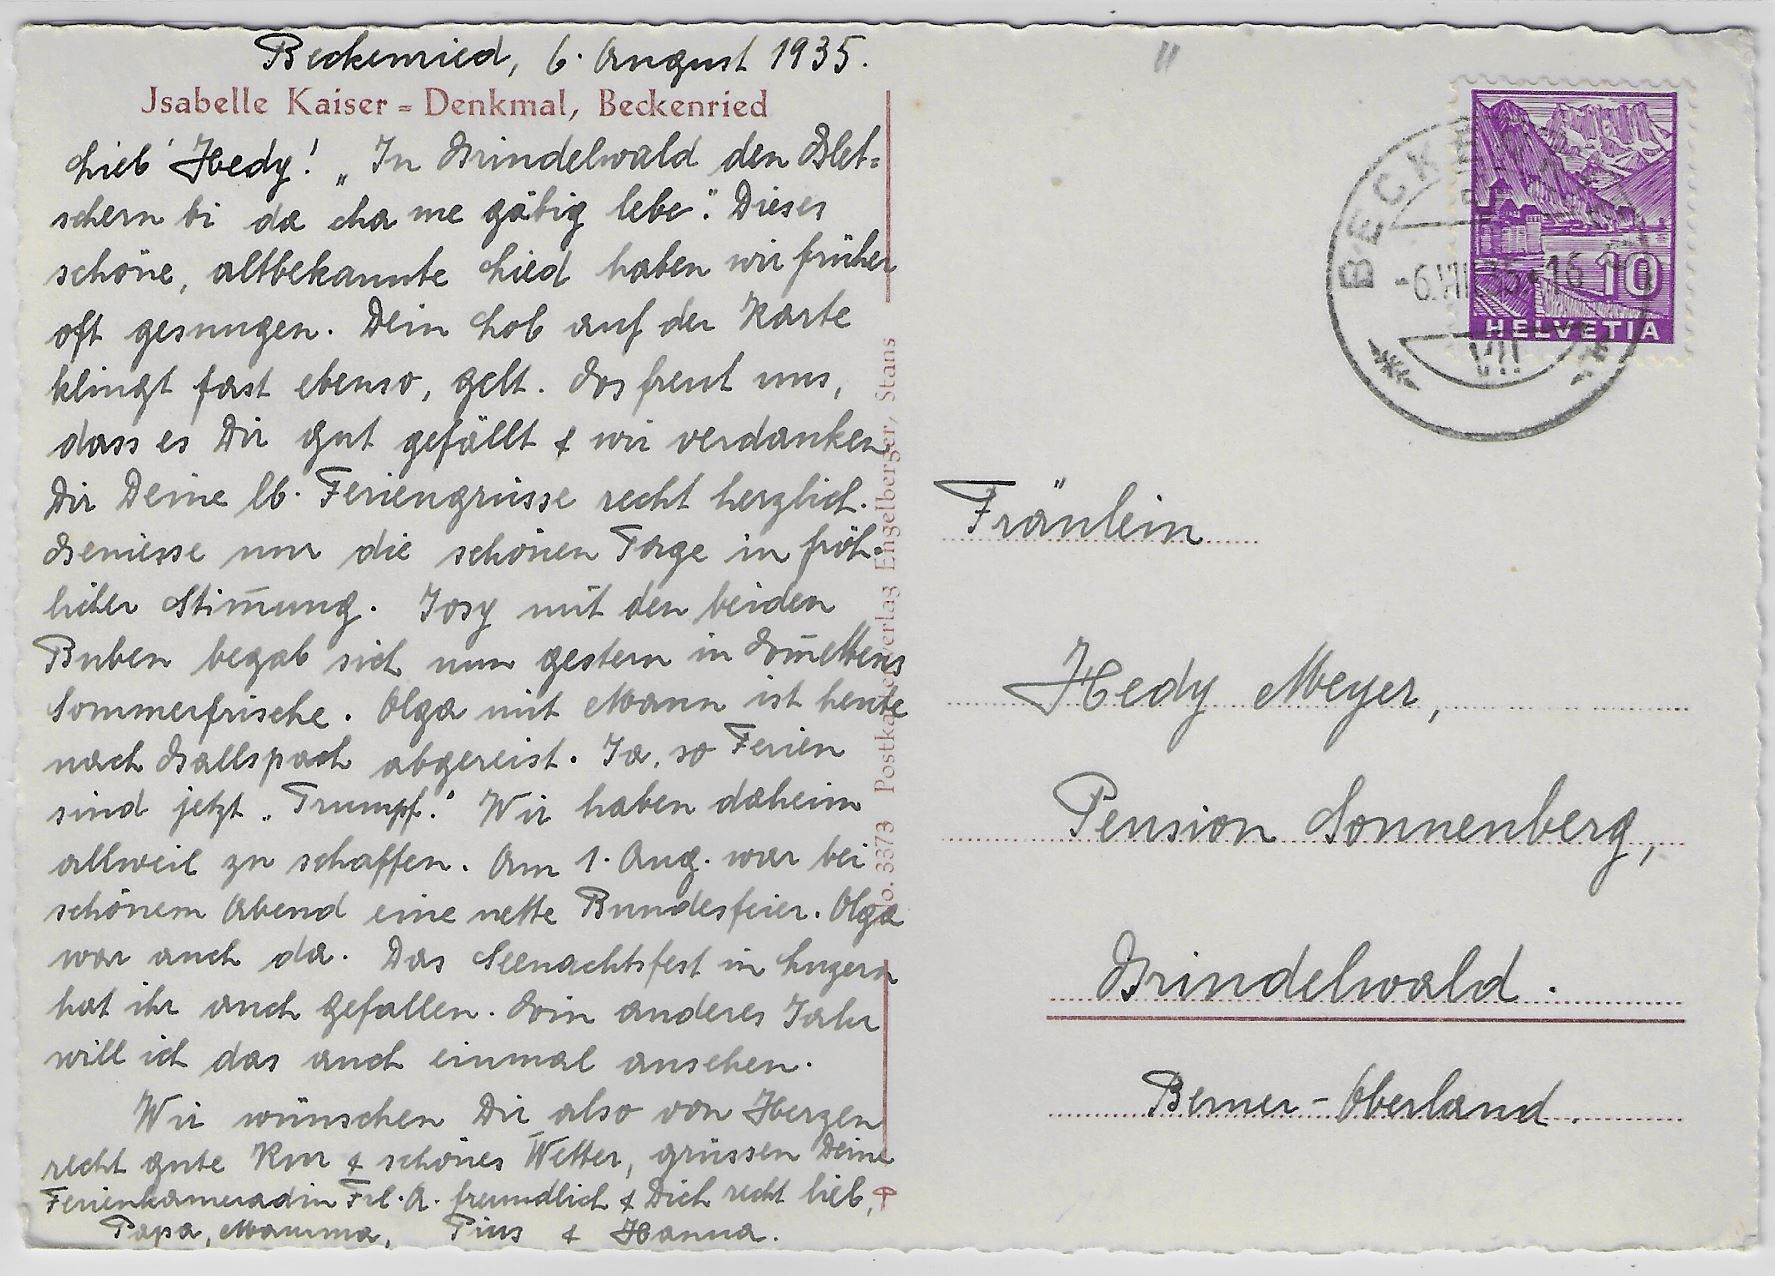 Beckenried, 6. August 1935.
Jsabelle Kaiser = Denkmal, Beckenried
Lieb' Hedy! „In Grindelwald den Glet=
schern bi da cha me gäbig lebe". Dieses
schöne, altbekannte Lied haben wir früher
oft gesungen. Dein Lob auf der Karte
klingt fast ebenso, gelt. Es freut uns,
dass es Dir gut gefällt & wir verdanken
Dir Deine lb. Feriengrüsse recht herzlich.
Geniesse nur die schönen Tage in fröh-
licher Stim̅ung. Josy mit den beiden
Buben begab sich nun gestern in
Sommerfrische. Olga mit Mann ist heute
nach Gallspach abgereist. Ja, so Ferien
sind jetzt „Trumpf". Wir haben daheim
allweil zu schaffen. Am 1. Aug. war bei
schönem Abend eine nette Bundesfeier. Olga
war auch da. Das Seenachtsfest in Luzern
hat ihr auch gefallen. Ein anderes Jahr
will ich das auch einmal ansehen.
Wir wünschen Dir also von Herzen
recht gute Kur & schönes Wetter, grüssen Deine
Ferienkameradin Frl. A. freundlich & Dich recht lieb,
Papa, Mamma, Pius & Hanna.
No. 3373 Postkartenverlag Engelberger, Stans
BECKENRIED
-6.VIII.35-16
VII
10
HELVETIA
Fräulein
Hedy Meyer,
Pension Sonnenberg,
Grindelwald.
Berner-Oberland.